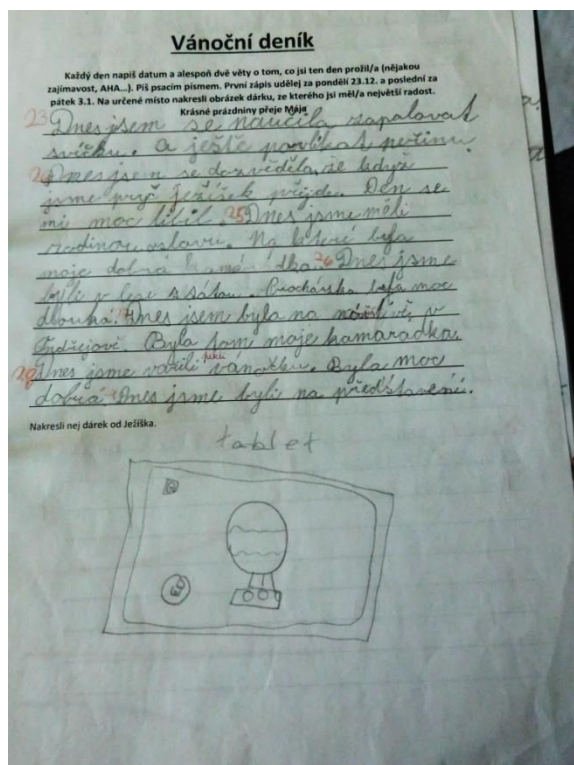 Vánoční deník
Každý den napiš datum a alespoň dvě věty o tom, co jsi ten den prožil/a (nějakou
zajímavost, AHA...). Piš psacím písmem. První zápis udělej za pondělí 23.12. a poslední za
pátek 3.1. Na určené místo nakresli obrázek dárku, ze kterého jsi měl/a největší radost.
Krásné prázdniny přeje Mája
23 Dnes jsem se naučila zapalovat
svíčku. a ještě povlíkat peřinu.
24 Dnes jsem se dozvěděla, že když
jsme pryč ježíšek přijde. Den se
mi moc líbil. 25 Dnes jsme měli
rodinou oslavu. Na které byla
moje dobrá 26 Dnes jsme
byli v lese s Procházka byla moc
dlouhá. Dnes jsem byla na v
Byla tam moje kamarádka.
Dnes jsme vařili pekli vánočku. Byla moc
dobrá. Dnes jsme byli na představení.
Nakresli nej dárek od Ježíška.
tablet